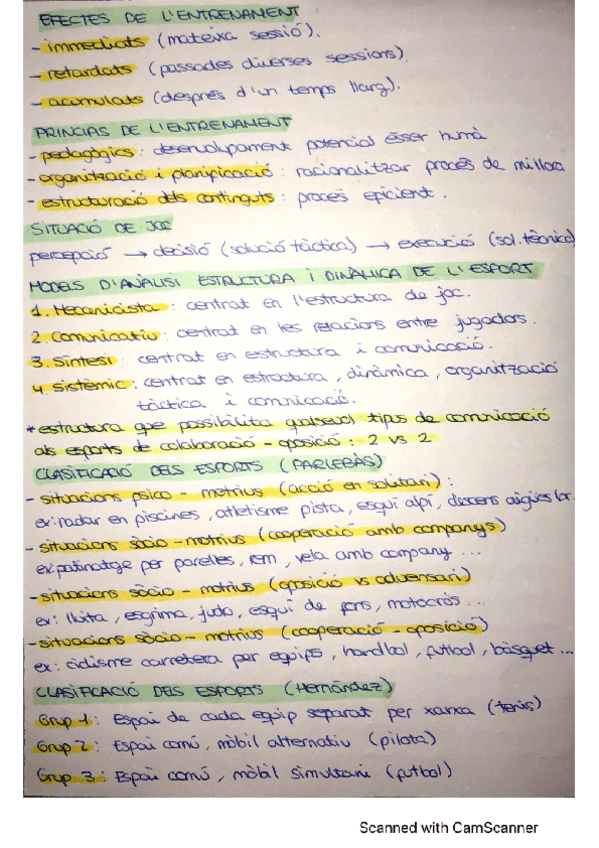 EFECTES DE L'ENTRENAMENT
- immediats (mateixa sessió).
- retardats (passades diverses sessions).
- acumulats (després d'un temps llarg).
PRINCIPIS DE L'ENTRENAMENT
- pedagògics: desenvolupament potencial ésser humà
- organització i planificació: racionalitzar procés de millora
- estructuració dels continguts: procés eficient.
SITUACIÓ DE JOC
percepció → decisió (solució tàctica) → execució (sol. tècnica)
MODELS D'ANÀLISI ESTRUCTURA i DINÀMICA DE L'ESPORT
1. Mecanicista: centrat en l'estructura de joc.
2 Comunicatiu: centrat en les relacions entre jugadors.
3. Síntesi: centrat en estructura i comunicació.
4. Sistèmic: centrat en estructura, dinàmica, organització
tàctica i comunicació.
*estructura que possibilita qualsevol tipus de comunicació
als esports de col·laboració - oposició: 2 vs 2
CLASIFICACIÓ DELS ESPORTS (PARLEBÀS)
- situacions psico - motrius (acció en solitari):
ex: nadar en piscines, atletisme pista, esquí alpí, descens aigües br.
- situacions sòcio - motrius (cooperació amb companys)
ex: patinatge per parelles, rem, vela amb company ...
- situacions sòcio - motrius (oposició vs adversari)
ex: lluita, esgrima, judo, esquí de fons, motocròs ...
- situacions sòcio - motrius (cooperació - oposició)
ex: ciclisme carretera per equips, handbol, futbol, bàsquet ...
CLASIFICACIÓ DELS ESPORTS (Hernández)
Grup 1: Espai de cada equip separat per xarxa (tenis)
Grup 2: Espai comú, mòbil alternatiu (pilota)
Grup 3: Espai comú, mòbil simultani (futbol)
Scanned with CamScanner